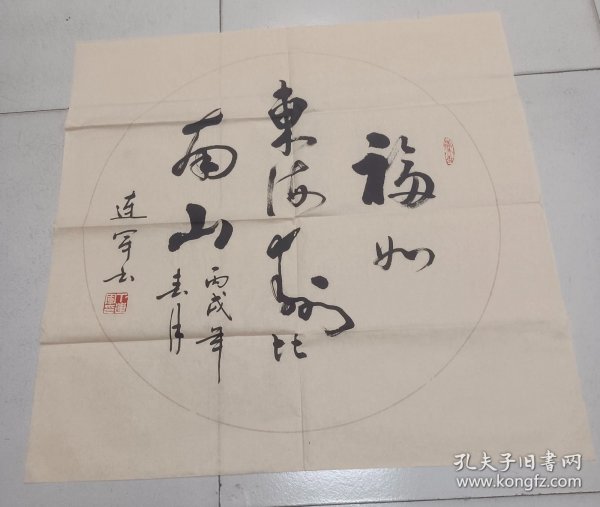 福如
東海壽比
南山
丙戌年
春月
连军书
孔夫子旧书网
www.kongfz.com